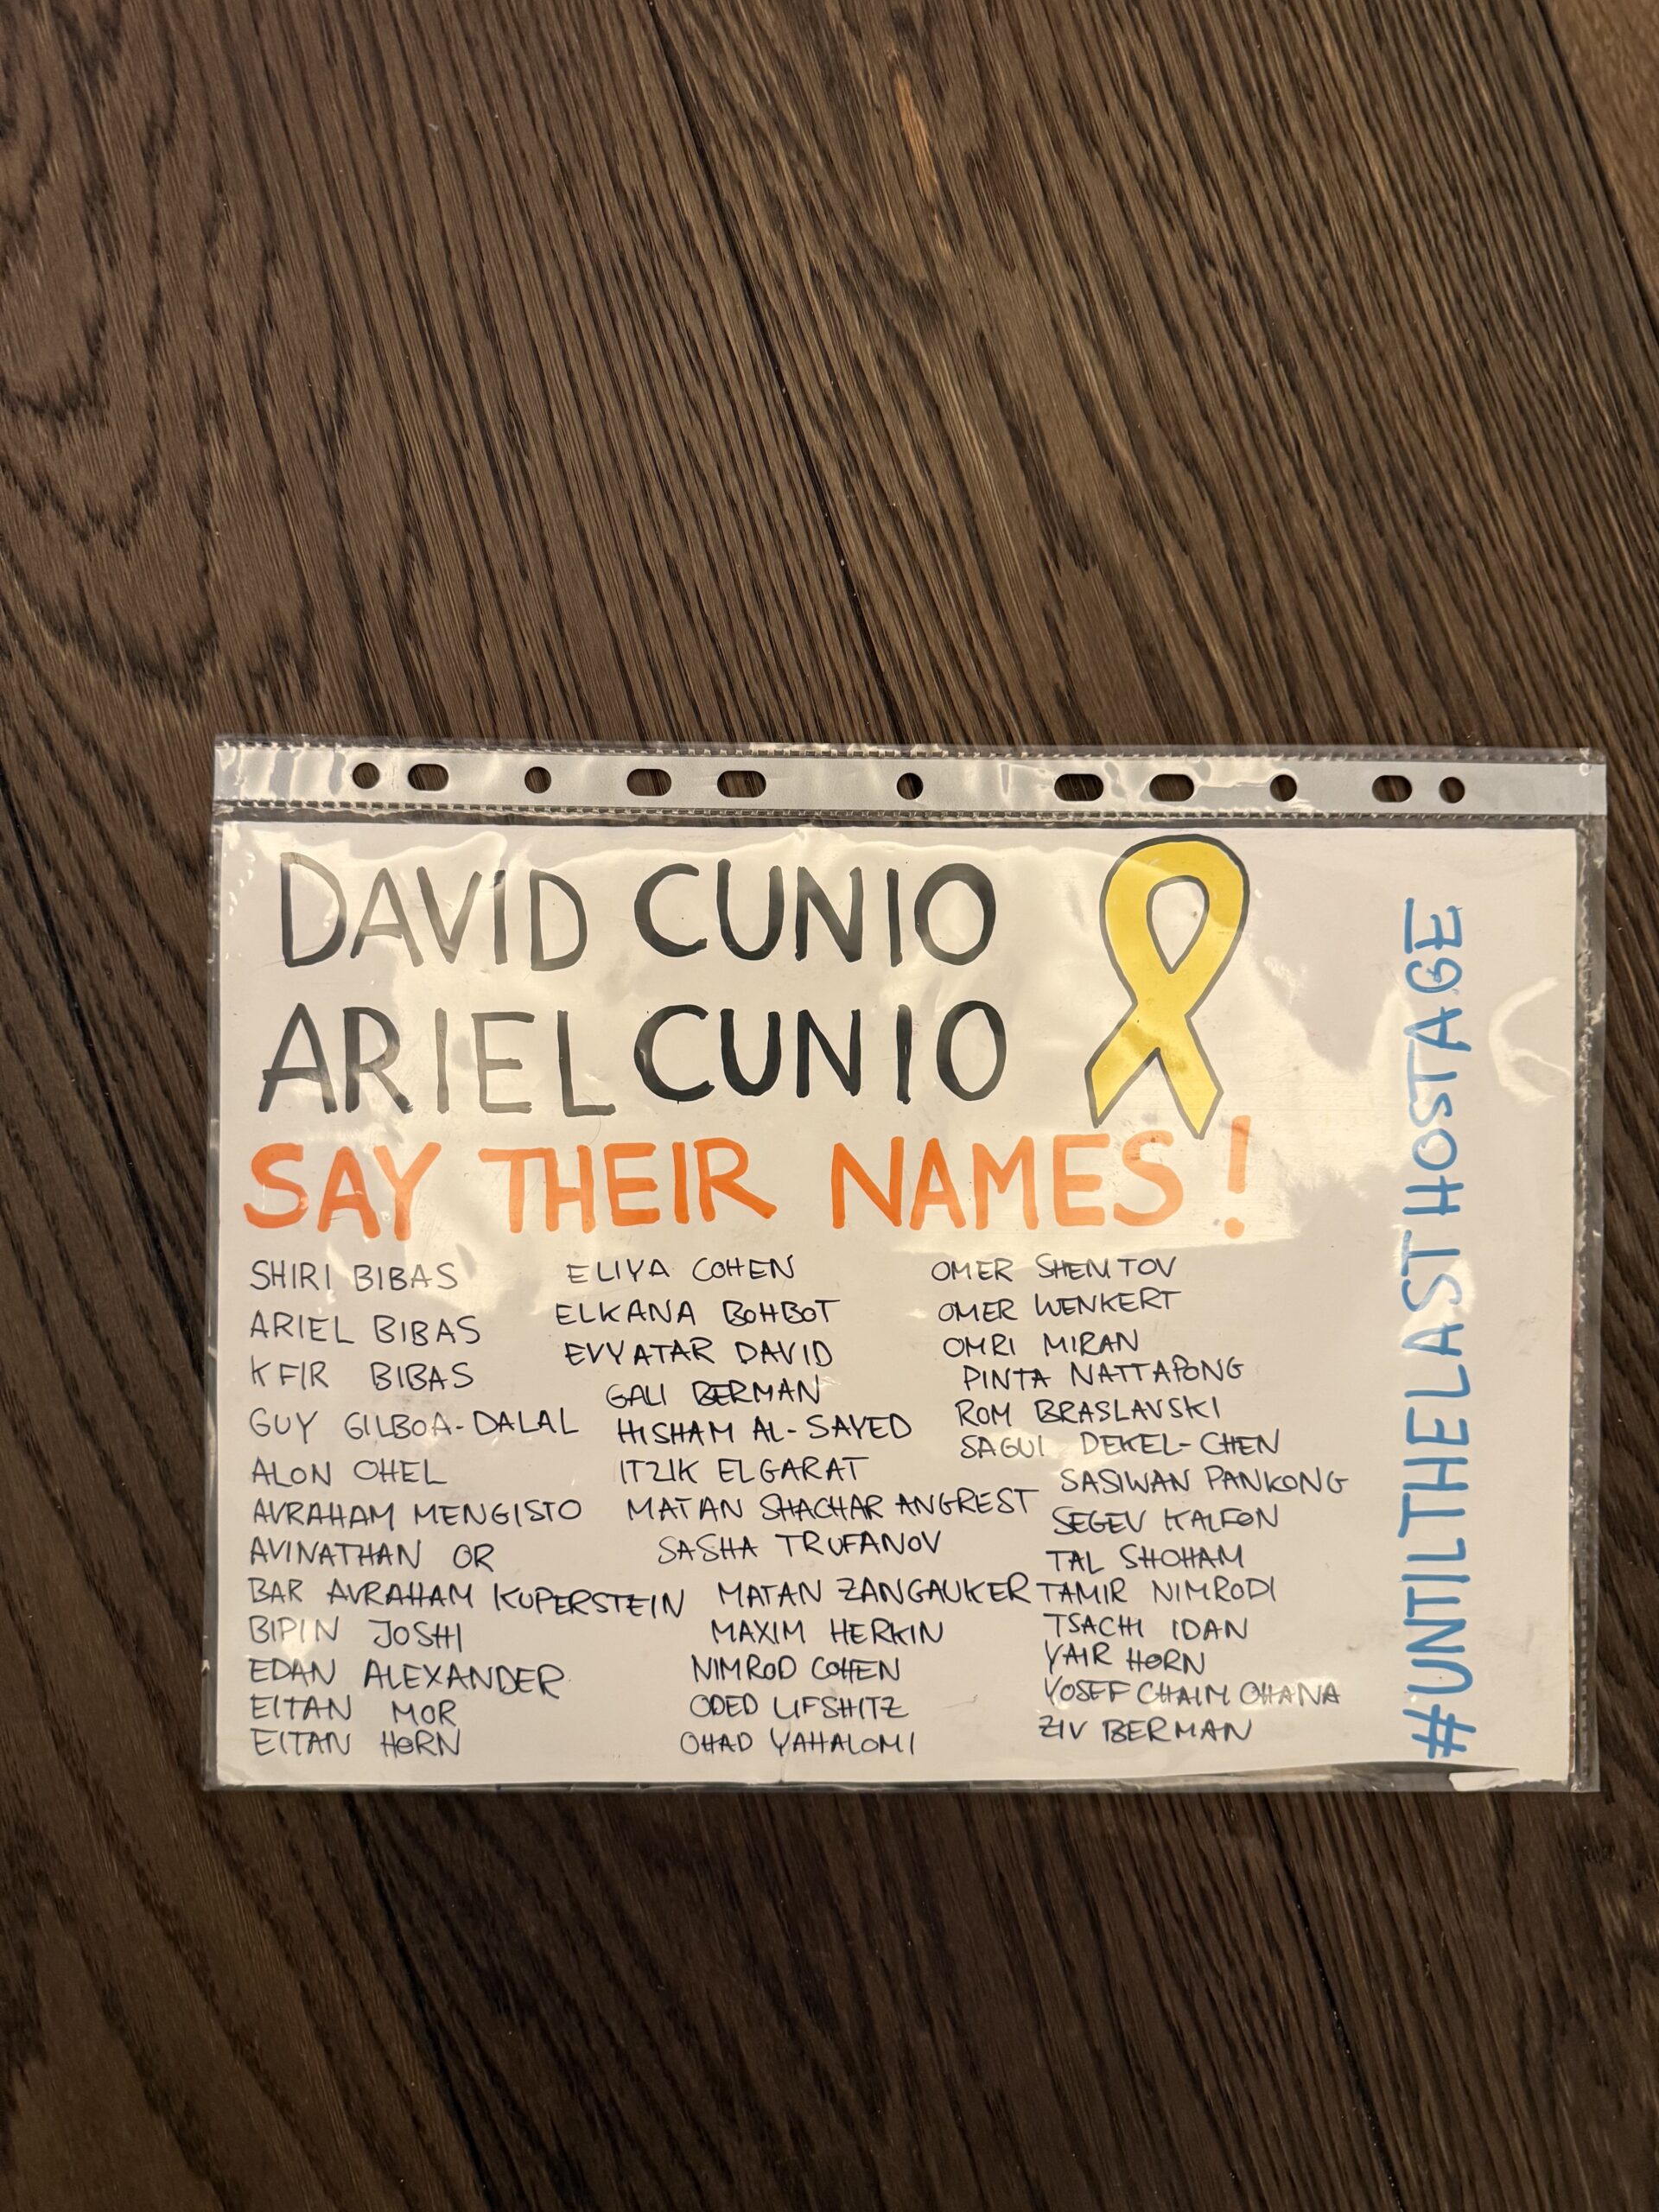 DAVID CUNIO
ARIEL CUNIO
SAY THEIR NAMES!
SHIRI BIBAS
ARIEL BIBAS
KFIR BIBAS
GUY GILBOA-DALAL
ALON OHEL
AVRAHAM MENGISTO
AVINATHAN OR
BAR AVRAHAM KUPERSTEIN
BIPIN JOSHI
EDAN ALEXANDER
EITAN MOR
EITAN HORN
ELIYA COHEN
ELKANA BOHBOT
EVYATAR DAVID
GALI BERMAN
HISHAM AL-SAYED
ITZIK ELGARAT
MATAN SHACHAR ANGREST
SASHA TRUFANOV
MATAN ZANGAUKER
MAXIM HERKIN
NIMROD COHEN
ODED LIFSHITZ
OHAD YAHALOMI
OMER SHEM TOV
OMER WENKERT
OMRI MIRAN
PINTA NATTAPONG
ROM BRASLAVSKI
SAGUI DEKEL-CHEN
SASIWAN PANKONG
SEGEV KALFON
TAL SHOHAM
TAMIR NIMRODI
TSACHI IDAN
YAIR HORN
YOSEF CHAIM OHANA
ZIV BERMAN
#UNTILTHELASTHOSTAGE